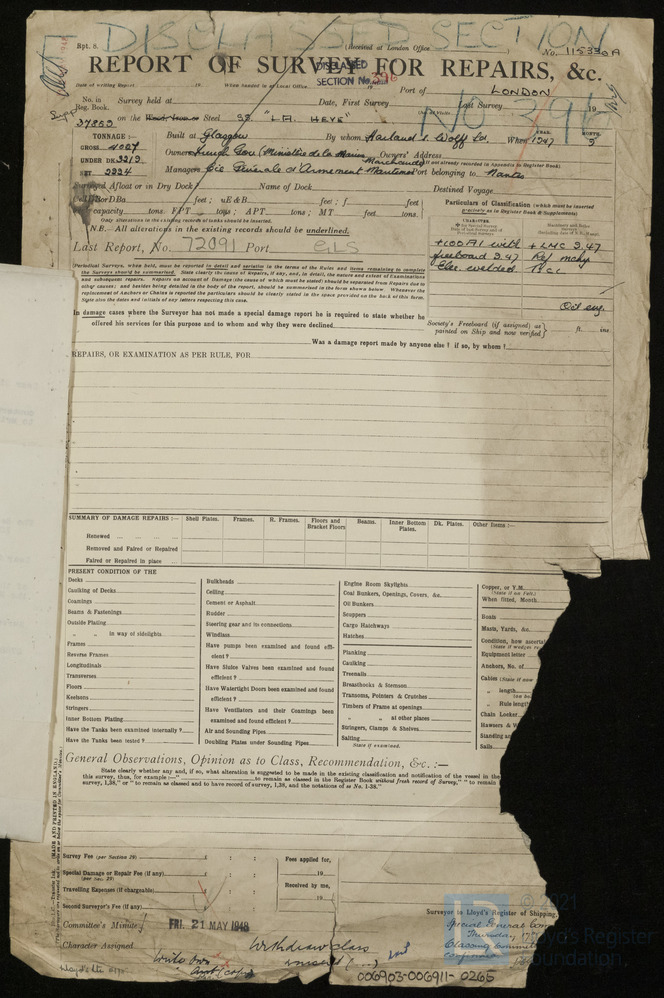 DISCLASSED SECTION
Rpt. 8.
(Received at London Office
No. 115336A
REPORT OF SURVEY FOR REPAIRS, &c.
DISCLASSED
SECTION No. 396
Date of writing Report 19 When handed in at Local Office 19 Port of LONDON
No. in Reg. Book. Survey held at Date, First Survey Last Survey 19
No 396
37853 on the Steel SS "LA HEVE"
TONNAGE:— Built at Glasgow By whom Harland & Wolff Ld. When 1947 5
GROSS 4027
UNDER DK 3213 Owners French Gov (Ministère de la Marine Marchande) Owners' Address
(If not already recorded in Appendix to Register Book)
NET 2224 Managers Cie Générale d'Armement Maritime Port belonging to Nantes
Surveyed Afloat or in Dry Dock Name of Dock Destined Voyage
feet; uE&B feet; f feet
capacity tons. FPT tons; APT tons; MT feet tons.
Only alterations in the existing records of tanks should be inserted.
N.B.—All alterations in the existing records should be underlined.
Particulars of Classification (which must be inserted precisely as in Register Book & Supplements)
Last Report, No. 72091 Port GLS
+100A1 with +LMC 3.47
freeboard 3.47 Ref mchy
Elec. welded TSCL
Oct eng.
(Periodical Surveys, when held, must be reported in detail and seriatim in the terms of the Rules and items remaining to complete
the Surveys should be summarised. State clearly the cause of Repairs, if any, and, in detail, the nature and extent of Examinations
and subsequent repairs. Repairs on account of Damage (the cause of which must be stated) should be separated from Repairs due to
other causes; and besides being detailed in the body of the report, should be summarised in the form shown below. Whenever the
replacement of Anchors or Chains is reported the particulars should be clearly stated in the space provided on the back of this form.
State also the dates and initials of any letters respecting this case.
In damage cases where the Surveyor has not made a special damage report he is required to state whether he
offered his services for this purpose and to whom and why they were declined
Society's Freeboard (if assigned) as painted on Ship and now verified ft. ins
Was a damage report made by anyone else? if so, by whom?
REPAIRS, OR EXAMINATION AS PER RULE, FOR
SUMMARY OF DAMAGE REPAIRS:— Shell Plates. Frames. R. Frames. Floors and Bracket Floors Beams. Inner Bottom Plates. Dk. Plates. Other Items:—
Renewed
Removed and Faired or Repaired
Faired or Repaired in place
PRESENT CONDITION OF THE
Decks
Caulking of Decks
Coamings
Beams & Fastenings
Outside Plating
" " in way of sidelights
Frames
Reverse Frames
Longitudinals
Transverses
Floors
Keelsons
Stringers
Inner Bottom Plating
Have the Tanks been examined internally?
Have the Tanks been tested?
Bulkheads
Ceiling
Cement or Asphalt
Rudder
Steering gear and its connections
Windlass
Have pumps been examined and found efficient?
Have Sluice Valves been examined and found efficient?
Have Watertight Doors been examined and found efficient?
Have Ventilators and their Coamings been examined and found efficient?
Air and Sounding Pipes
Doubling Plates under Sounding Pipes
Engine Room Skylights
Coal Bunkers, Openings, Covers, &c.
Oil Bunkers
Scuppers
Cargo Hatchways
Hatches
Planking
Caulking
Treenails
Breasthooks & Stemson
Transoms, Pointers & Crutches
Timbers of Frame at openings
" " at other places
Stringers, Clamps & Shelves
Salting
State if examined.
Copper, or Y.M.
(State if on Felt.)
When fitted, Month
Boats
Masts, Yards, &c.
Condition, how ascertai
(State if wedges re
Equipment letter
Anchors, No. of
Cables (State if now
" length
" Rule lengt
Chain Locker
Hawsers & W
Standing an
Sails
General Observations, Opinion as to Class, Recommendation, &c.:—
State clearly whether any and, if so, what alteration is suggested to be made in the existing classification and notification of the vessel in the
this survey, thus, for example:—" to remain as classed in the Register Book without fresh record of Survey," " to remain
survey, 1,38," or "to remain as classed and to have record of survey, 1,38, and the notations of ss No. 1-38."
(MADE AND PRINTED IN ENGLAND.)
Survey Fee (per Section 29) £ : : Fees applied for,
Special Damage or Repair Fee (if any) £ : : 19
(per Sec. 29)
Travelling Expenses (if chargeable) £ : : Received by me,
19
Second Surveyor's Fee (if any) £ : :
Surveyor to Lloyd's Register of Shipping.
Committee's Minute FRI. 21 MAY 1948
Character Assigned Withdrawn class
Special General Com
Thursday
© 2021
Lloyd's Register
Foundation
006903-006911-0265